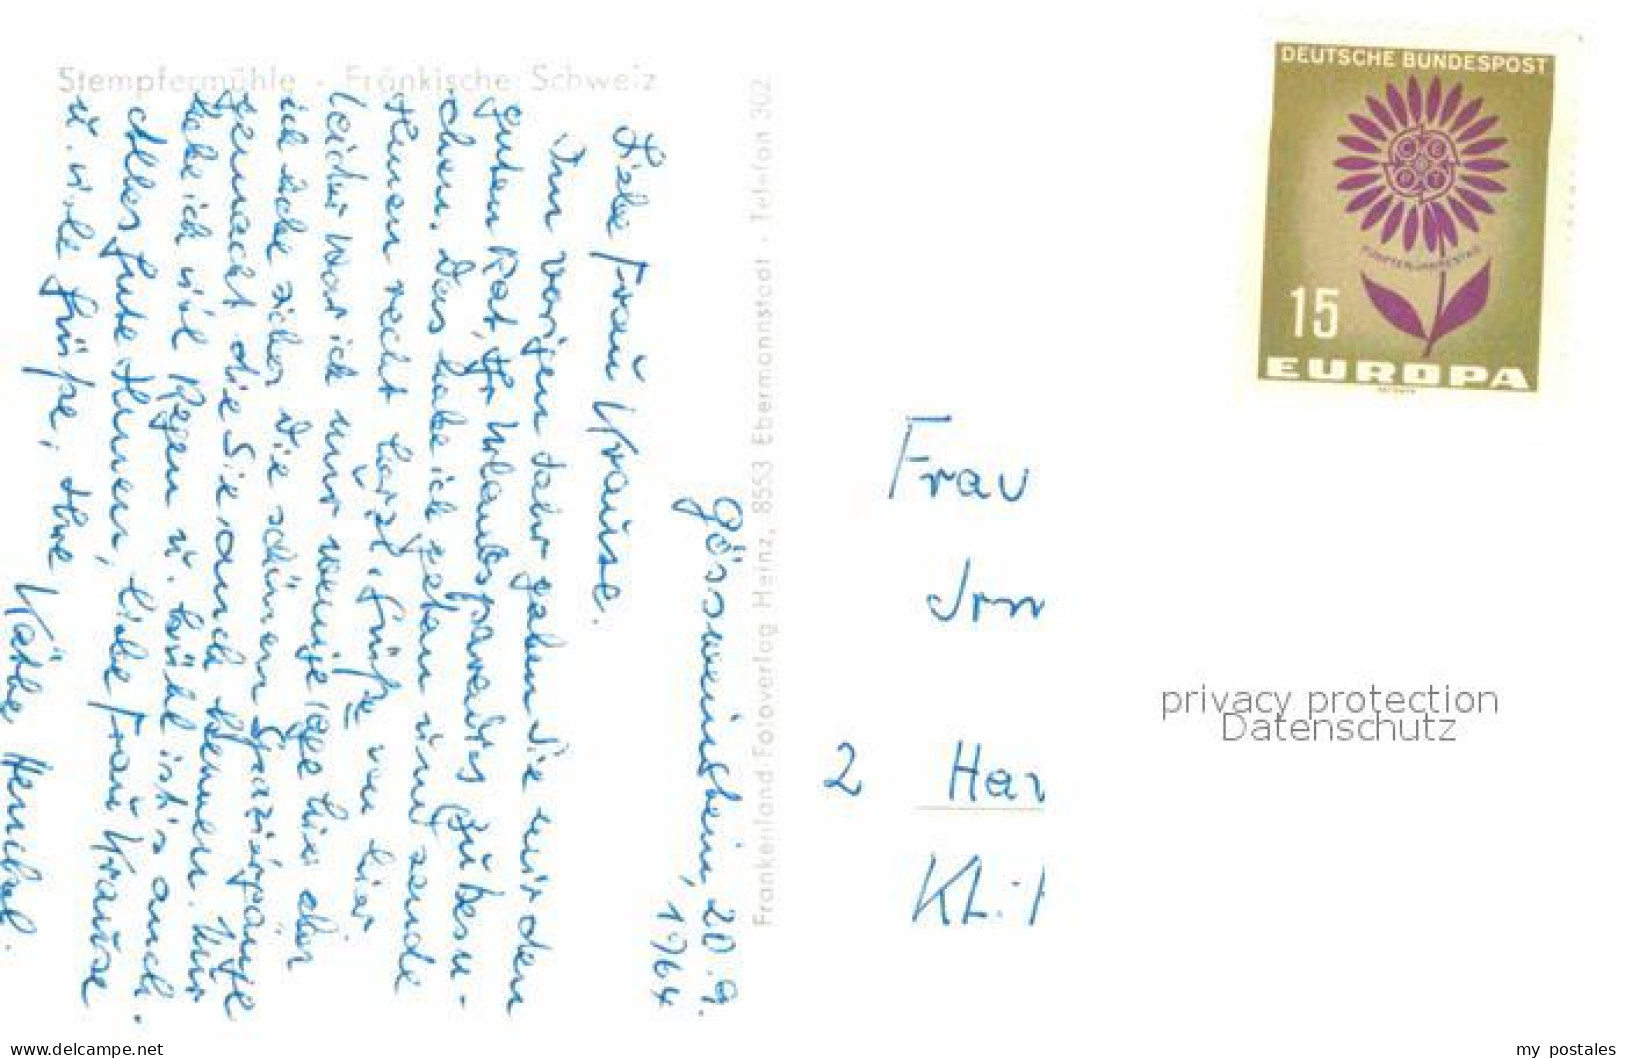 Stempfermühle - Fränkische Schweiz
Gössweinstein, 20.9.
1964
Liebe Frau Krause.
Im vorigen Jahr gaben Sie mir den
guten Rat, Ihr Urlaubsparadies zu besu-
chen. Das habe ich getan und sende
Ihnen recht herzl. Grüße von hier
leider war ich nur wenige Tage hier aber
ich habe sicher die schönen Spaziergänge
gemacht die Sie auch kennen. Nur
habe ich viel Regen u. kühl ist's auch.
Alles Gute Ihnen, liebe Frau Krause
u. viele Grüße, Ihre
Käthe Henschel.
Frankenland-Fotoverlag Heinz, 8553 Ebermannstadt - Telefon 302
DEUTSCHE BUNDESPOST
C E
P T
15
EUROPA
Frau
Irm
2 Har
Kl. H
privacy protection
Datenschutz
delcampe.net
my_postales